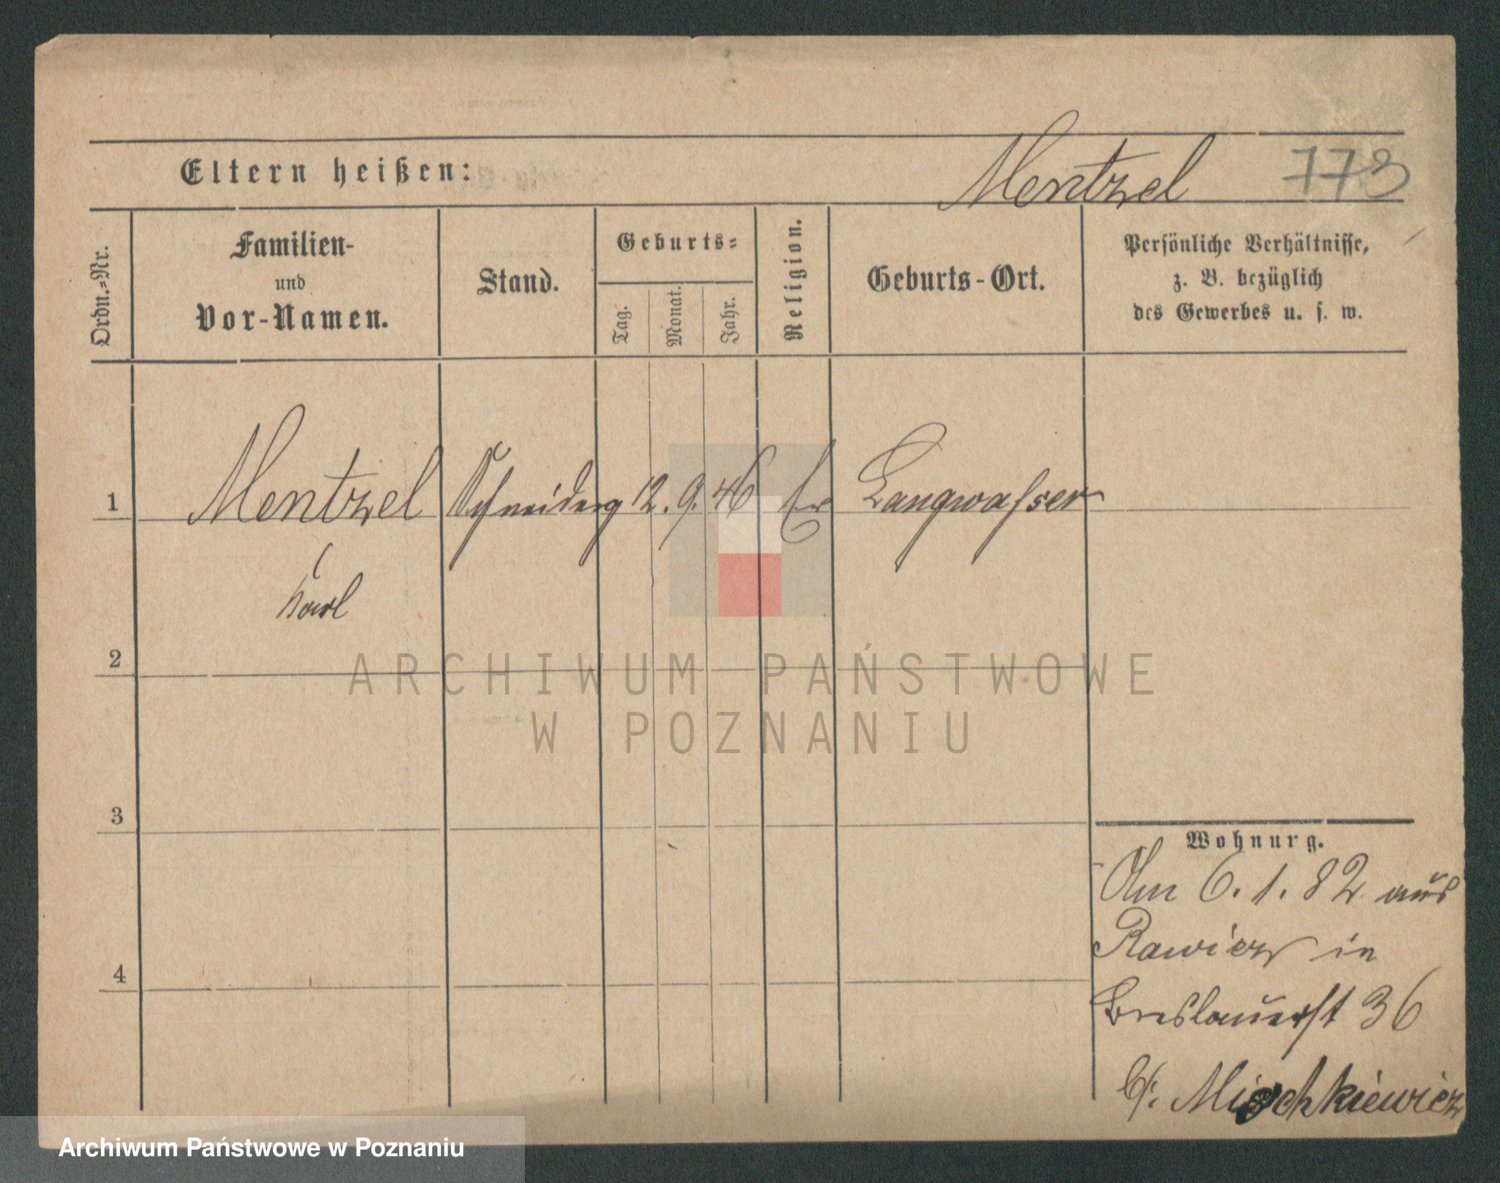 Eltern heißen:
Mentzel 773
Ordn.-Nr.
Familien-
und
Vor-Namen.
Stand.
Geburts-
Tag.
Monat.
Jahr.
Religion.
Geburts-Ort.
Persönliche Verhältnisse,
z. B. bezüglich
des Gewerbes u. s. w.
1 Mentzel Schneiderg 12. 9. 46 Langwasser
Karl
2
3
4
Wohnurg.
Am 6. 1. 82 aus
Rawicz in
Breslauerst 36
b/: Mischkiewicz
ARCHIWUM PAŃSTWOWE
W POZNANIU
Archiwum Państwowe w Poznaniu